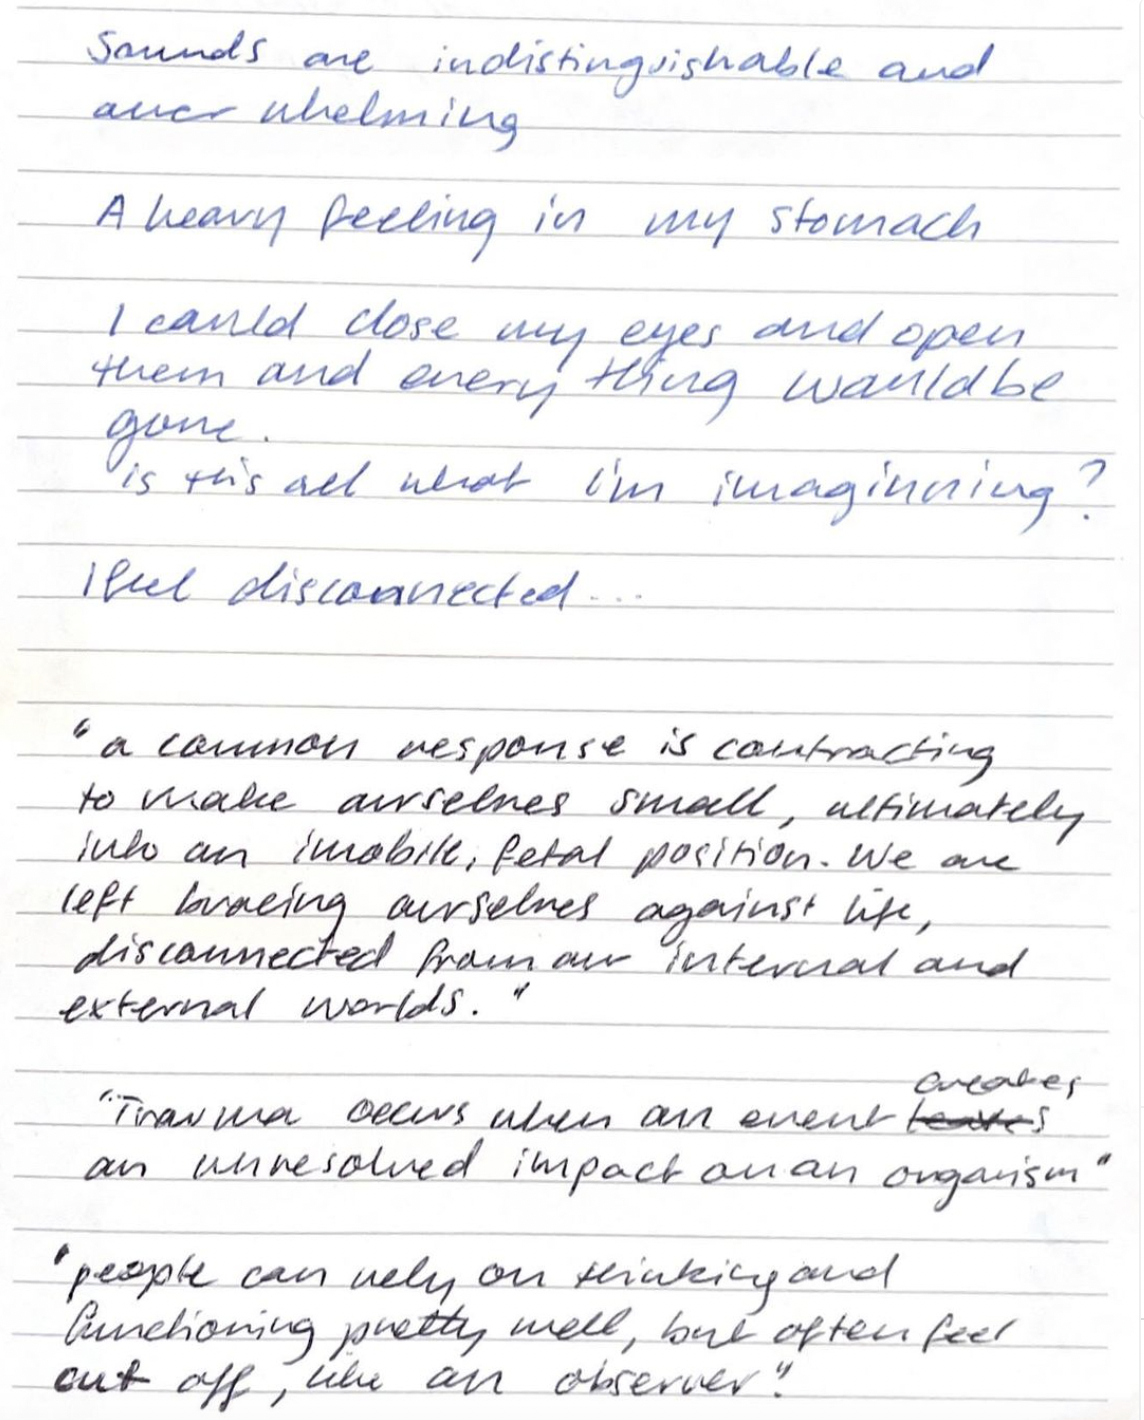 Sounds are indistinguishable and
over whelming
A heavy feeling in my stomach
I could close my eyes and open
them and every thing would be
gone.
is this all what I'm imaginning?
I feel disconnected...
"a common response is contracting
to make ourselves small, ultimately
into an imobile, fetal position. We are
left bracing ourselves against life,
disconnected from our internal and
external worlds."
creates
"Trauma occurs when an event leaves
an unresolved impact on an organism"
"people can rely on thinking and
functioning pretty well, but often feel
cut off, like an observer".